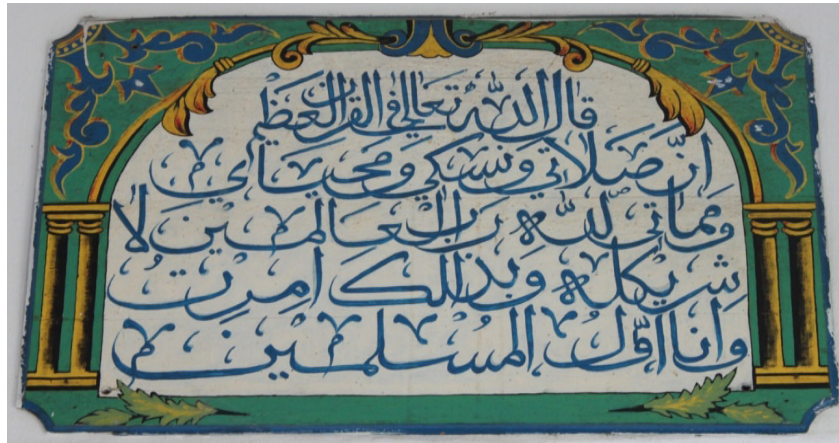 قال الله تعالى في القرآن العظيم
ان صلاتي ونسكي ومحياي
ومماتى لله رب العالمين لا
شريك له وبذلك امرت
وانا اول المسلمين